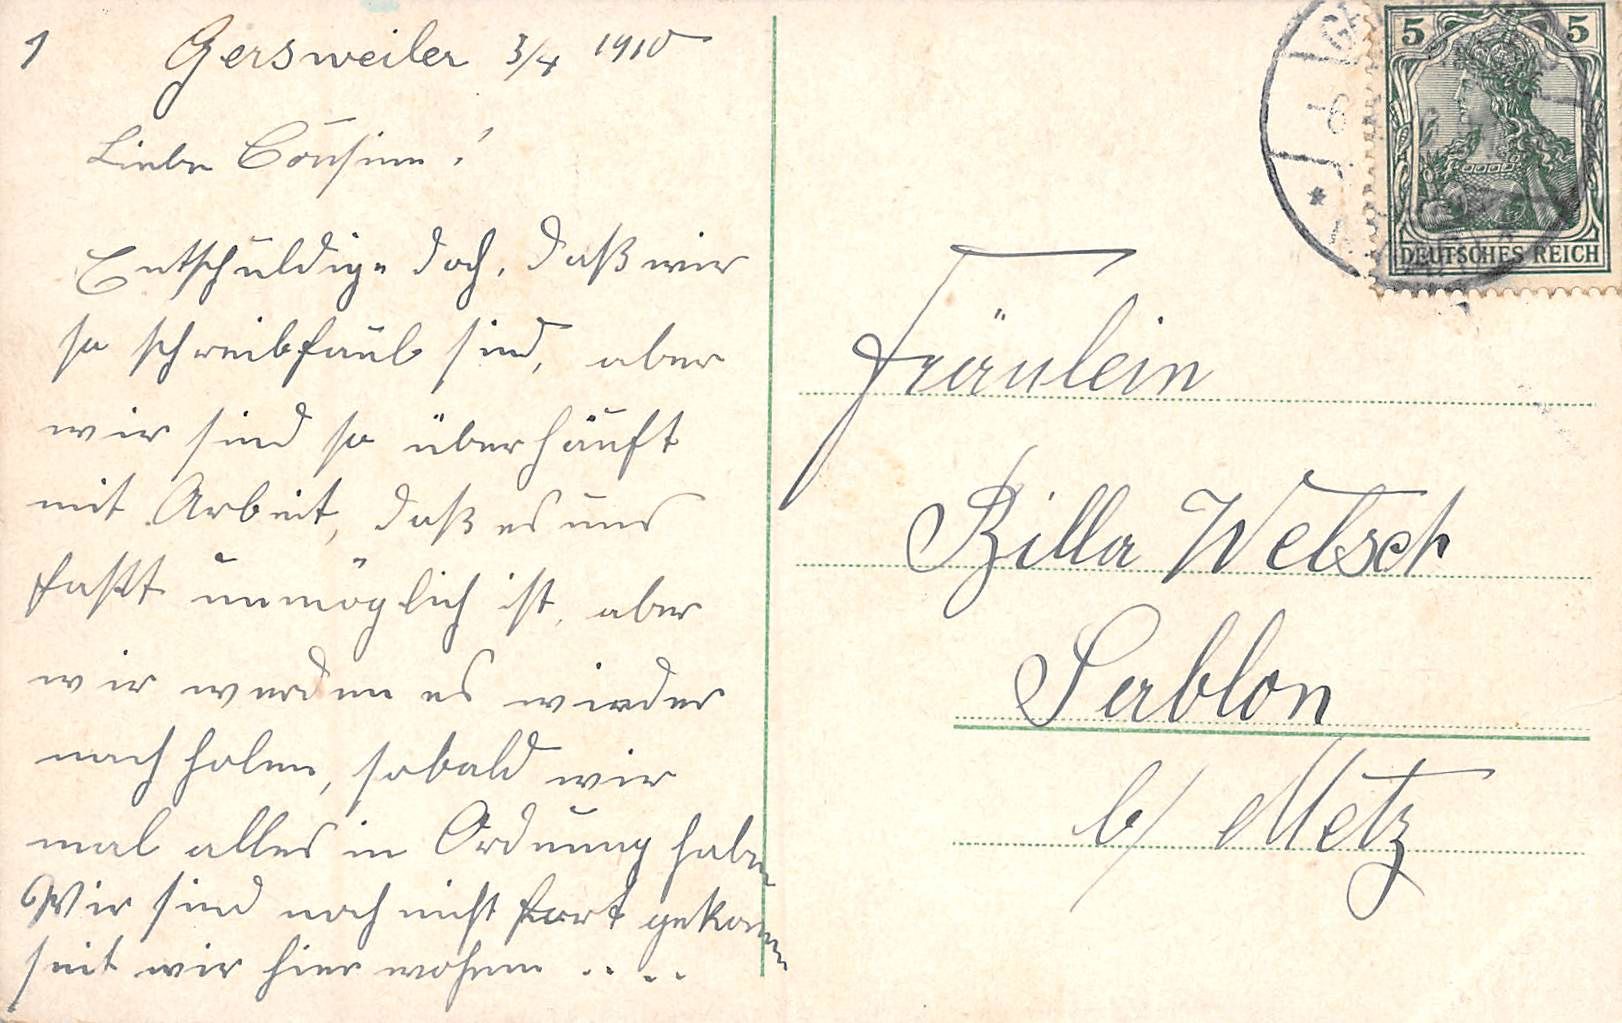 1
Gersweiler 3/4 1910
Liebe Cousine!
Entschuldige doch, daß wir
so schreibfaul sind, aber
wir sind so überhäuft
mit Arbeit, daß es uns
faßt unmöglich ist, aber
wir werden es wieder
nach holen, sobald wir
mal alles in Ordnung haben
Wir sind noch nicht fort gekommen
seit wir hier wohnen ....
5 5
DEUTSCHES REICH
Fräulein
Billa Welsch
Sablon
b/ Metz